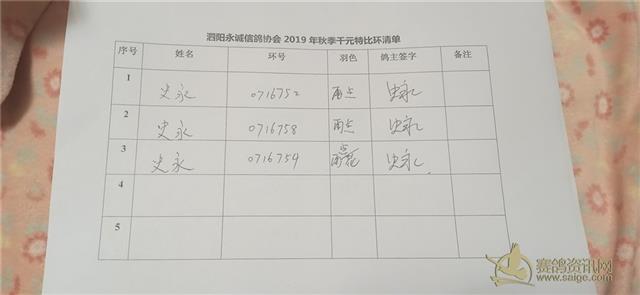 泗阳永诚信鸽协会 2019 年秋季千元特比环清单
序号 姓名 环号 羽色 鸽主签字 备注
1 史永 0716752 雨点 史永
2 史永 0716758 雨点 史永
3 史永 0716759 史永
4
5
赛鸽资讯网
www.saige.com